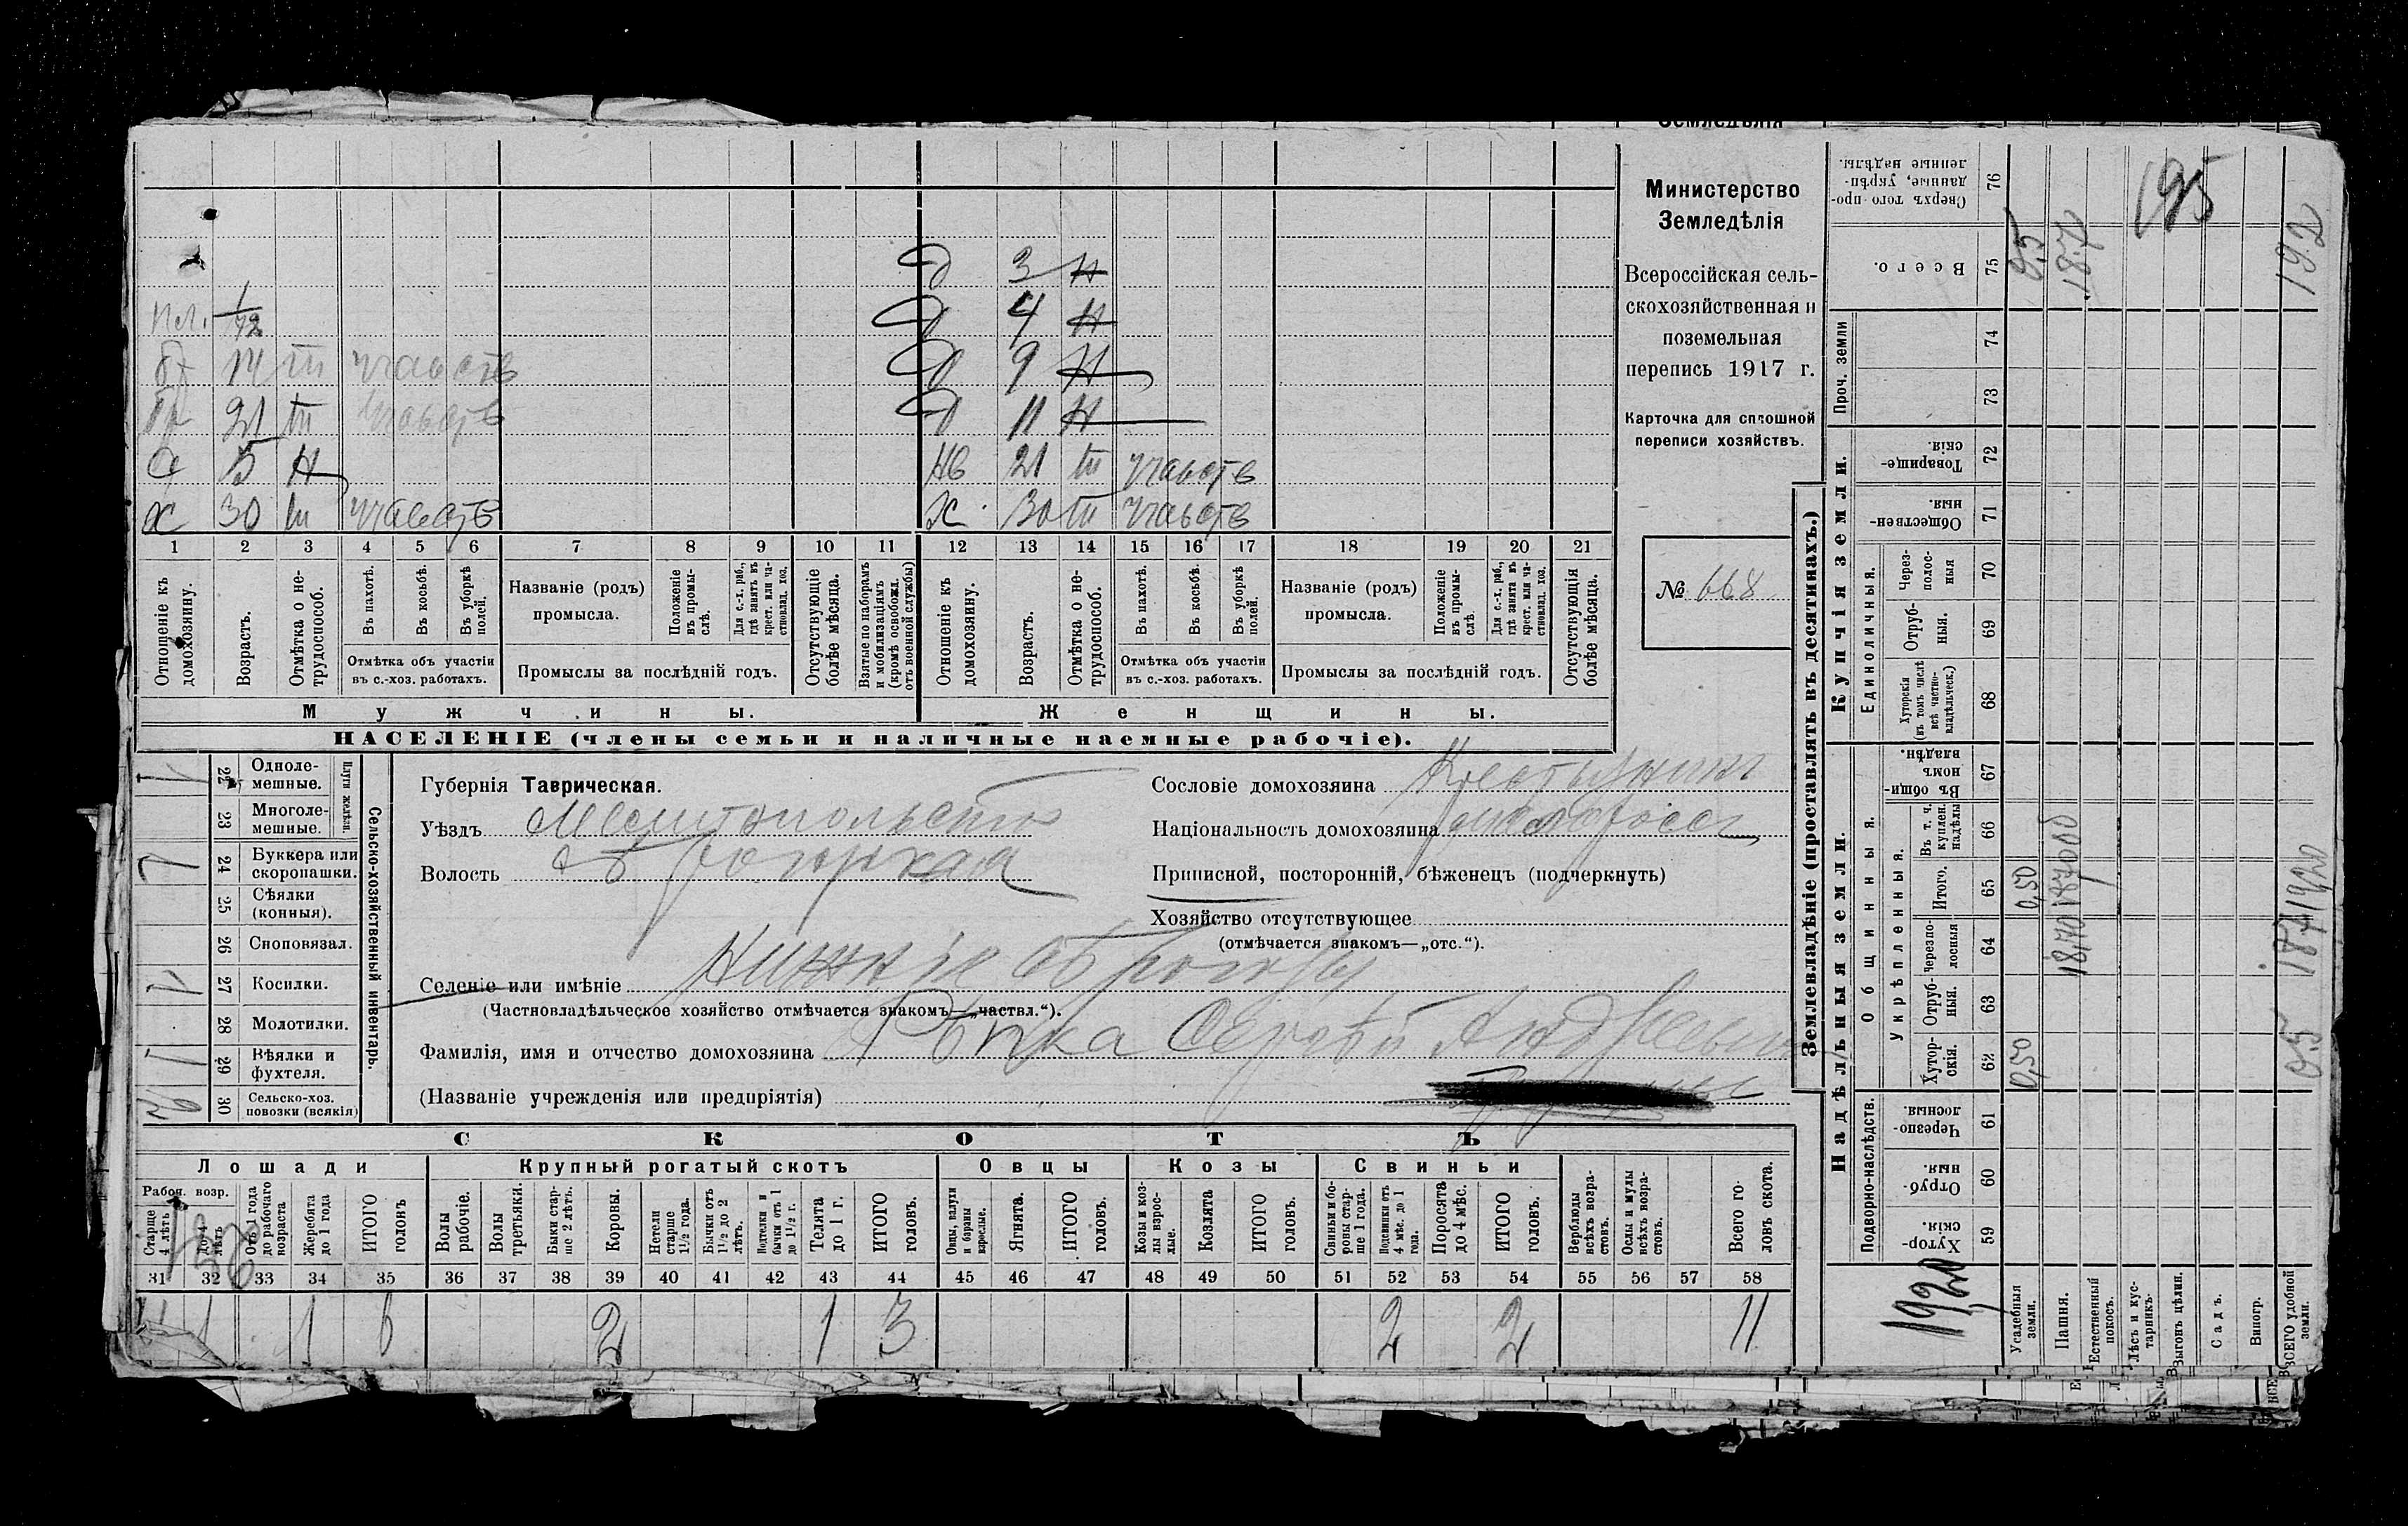 Министерство
Земледѣлія
Всероссійская сель-
скохозяйственная и
поземельная
перепись 1917 г.
Карточка для сплошной
переписи хозяйствъ.
№ 668
д 3 н
пл. 1/12 д 4 н
14 т участв д 9 н
21 т участв д 11 н
5 н нв 21 т участв
х 30 т участв х. 30 т участв
1 2 3 4 5 6 7 8 9 10 11 12 13 14 15 16 17 18 19 20 21
Отношеніе къ домохозяину.
Возрастъ.
Отмѣтка о не-трудоспособ.
Въ пахотѣ.
Въ косьбѣ.
Въ уборкѣ полей.
Отмѣтка объ участіи
въ с.-хоз. работахъ.
Названіе (родъ)
промысла.
Положеніе въ промы-слѣ.
Для с.-х. раб., гдѣ занятъ въ крест. или ча-стновлад. хоз.
Промыслы за послѣдній годъ.
Отсутствующіе болѣе мѣсяца.
Взятые по наборамъ и мобилизаціямъ (кромѣ освобожд. отъ военной службы)
Отношеніе къ домохозяину.
Возрастъ.
Отмѣтка о не-трудоспособ.
Въ пахотѣ.
Въ косьбѣ.
Въ уборкѣ полей.
Отмѣтка объ участіи
въ с.-хоз. работахъ.
Названіе (родъ)
промысла.
Положеніе въ промы-слѣ.
Для с.-х. раб., гдѣ занята въ крест. или ча-стновлад. хоз.
Промыслы за послѣдній годъ.
Отсутствующія болѣе мѣсяца.
Мужчины. Женщины.
НАСЕЛЕНІЕ (члены семьи и наличные наемные рабочіе).
Сельско-хозяйственный инвентарь.
Плуги желѣзн.
22 Одноле-мешные. 1
23 Многоле-мешные.
24 Буккера или скоропашки. 1
25 Сѣялки (конныя).
26 Сноповязал.
27 Косилки. 1
28 Молотилки.
29 Вѣялки и фухтеля. 1
30 Сельско-хоз. повозки (всякія)
Губернія Таврическая.
Уѣздъ Мелитопольскій
Волость Рогачская
Селеніе или имѣніе Нижніе Рогачи
(Частновладѣльческое хозяйство отмѣчается знакомъ—„частвл.“).
Фамилія, имя и отчество домохозяина Рѣпка Сергѣй Андреевичъ
(Названіе учрежденія или предпріятія)
Сословіе домохозяина Крестьянинъ
Національность домохозяина малороссъ
Приписной, посторонній, бѣженецъ (подчеркнуть)
Хозяйство отсутствующее
(отмѣчается знакомъ—„отс.“).
СКОТЪ
Лошади Крупный рогатый скотъ Овцы Козы Свиньи
Рабоч. возр.
Старше 4 лѣтъ
До 4 лѣтъ
Отъ 1 года до рабочаго возраста
Жеребята до 1 года
ИТОГО головъ
Волы рабочіе.
Волы третьяки.
Быки стар-ше 2 лѣтъ.
Коровы.
Нетели старше 1½ года.
Бычки отъ 1½ до 2 лѣтъ.
Подтелки и бычки отъ 1 до 1½ г.
Телята до 1 г.
ИТОГО головъ.
Овцы, валухи и бараны взрослые.
Ягнята.
ИТОГО головъ.
Козы и коз-лы взрос-лые.
Козлята
ИТОГО головъ.
Свиньи и бо-ровы стар-ше 1 года.
Подсвинки отъ 4 мѣс. до 1 года.
Поросята до 4 мѣс.
ИТОГО головъ.
Верблюды всѣхъ возра-стовъ.
Ослы и мулы всѣхъ возра-стовъ.
Всего го-ловъ скота.
31 32 33 34 35 36 37 38 39 40 41 42 43 44 45 46 47 48 49 50 51 52 53 54 55 56 57 58
4 1 1 6 2 1 3 2 2 11
Землевладѣніе (проставлять въ десятинахъ.)
Надѣльныя земли. Купчія земли.
Подворно-наслѣдств.
Общинныя.
Укрѣпленныя.
Единоличныя.
Проч. земли
59 Хутор-скія.
60 Отруб-ныя.
61 Черезпо-лосныя.
62 Хутор-скія.
63 Отруб-ныя.
64 Черезпо-лосныя
65 Итого.
66 Въ т. ч. куплен. надѣлы
67 Въ общи-номъ владѣн.
68 Хуторскія (въ томъ числѣ всѣ частно-владѣльческ.)
69 Отруб-ныя.
70 Через-полос-ныя
71 Обществен-ныя
72 Товарище-скія.
73
74
75 Всего.
76 Сверхъ того про-данные, укрѣп-ленные надѣлы.
Усадебныя земли. 0,50 0,50 0,5
Пашня. 18,70 18,70 18,7
Естественный покосъ.
Лѣсъ и кус-тарникъ.
Выгонъ цѣлин.
Садъ.
Виногр.
ВСЕГО удобной земли. 0,5 18,7 19,20 19,2
19,20
195